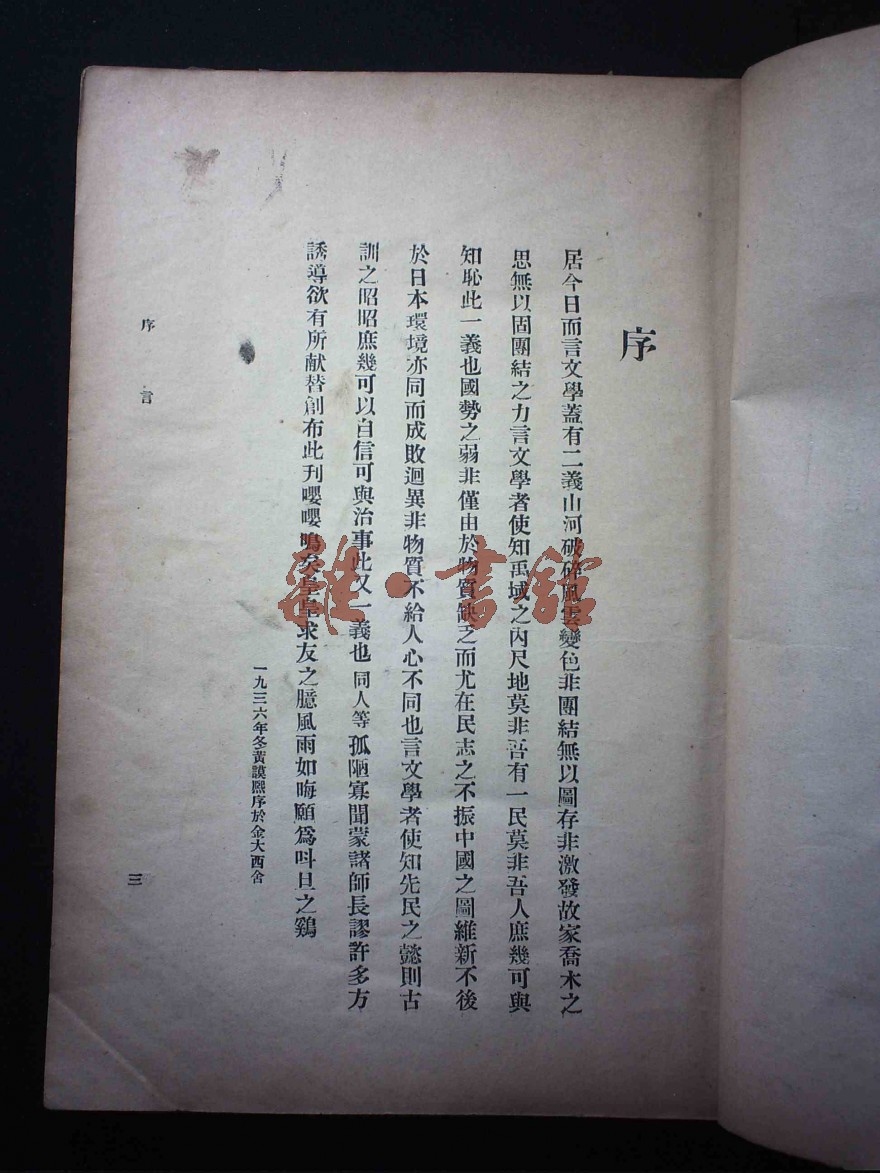 序
居今日而言文學蓋有二義山河破碎風雲變色非團結無以圖存非激發故家喬木之
思無以固團結之力言文學者使知禹域之內尺地莫非吾有一民莫非吾人庶幾可與
知恥此一義也國勢之弱非僅由於物質缺乏而尤在民志之不振中國之圖維新不後
於日本環境亦同而成敗迴異非物質不給人心不同也言文學者使知先民之懿則古
訓之昭昭庶幾可以自信可與治事此又一義也同人等孤陋寡聞蒙諸師長謬許多方
誘導欲有所献替創布此刊嚶嚶鳴矣皇皇求友之臆風雨如晦願為呌旦之鷄
一九三六年冬黃謨熙序於金大西舍
序言
三
雜·書館